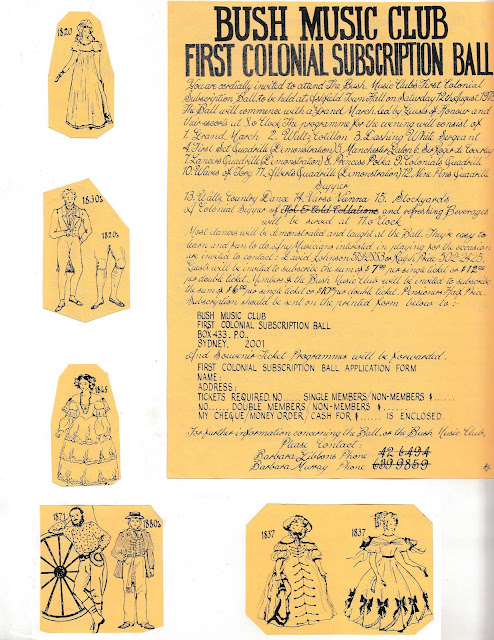 BUSH MUSIC CLUB
FIRST COLONIAL SUBSCRIPTION BALL
You are cordially invited to attend The Bush Music Club's First Colonial
Subscription Ball to be held at Ashfield Town Hall on Saturday 12th August 197
The Ball will commence with a Grand March led by Guests of Honour and
the programme for the evening will consist of
1. Grand March 2. Waltz Cotillon 3. Dashing White Sergeant
4. First Set Quadrille (Demonstration) 5. Manchester Galop 6. Sir Roger de Coverley
7. Lancers Quadrille (Demonstration) 8. Princess Polka 9. Colonials Quadrille
10. Waves of Tory 11. Alberts Quadrille (Demonstration) 12. Nine Pins Quadrille
Supper
13. Waltz Country Dance 14. Varso Vienna 15. Stockyards
A Colonial Supper of Hot & Cold Collations and refreshing Beverages
will be served at
Most dances will be demonstrated and taught at the Ball. They're easy to
learn and fun to do. Any Musicians interested in playing for the occasion
are invited to contact: David Johnson or Ralph Pride
Guests will be invited to subscribe the sum of $7.00 per single ticket or $12.00
per double ticket. Members of the Bush Music Club will be invited to subscribe
the sum of $6.00 per single ticket or $10.00 per double ticket. Pensioners Half Price.
Subscription should be sent on the printed form below to:-
BUSH MUSIC CLUB
FIRST COLONIAL SUBSCRIPTION BALL
BOX 433, P.O.,
SYDNEY, 2001
And Souvenir Ticket Programmes will be forwarded.
FIRST COLONIAL SUBSCRIPTION BALL APPLICATION FORM
NAME:
ADDRESS:
TICKETS REQUIRED. NO...... SINGLE MEMBERS/NON-MEMBERS $......
NO...... DOUBLE MEMBERS/NON-MEMBERS $......
MY CHEQUE/MONEY ORDER/CASH FOR $...... IS ENCLOSED.
For further information concerning the Ball, or the Bush Music Club,
Please Contact:
Barbara Gibbons Phone 42 6494
Barbara Murray Phone 639 9859
1820
1830s
1820s
1865
1871
1880s
1837
1837